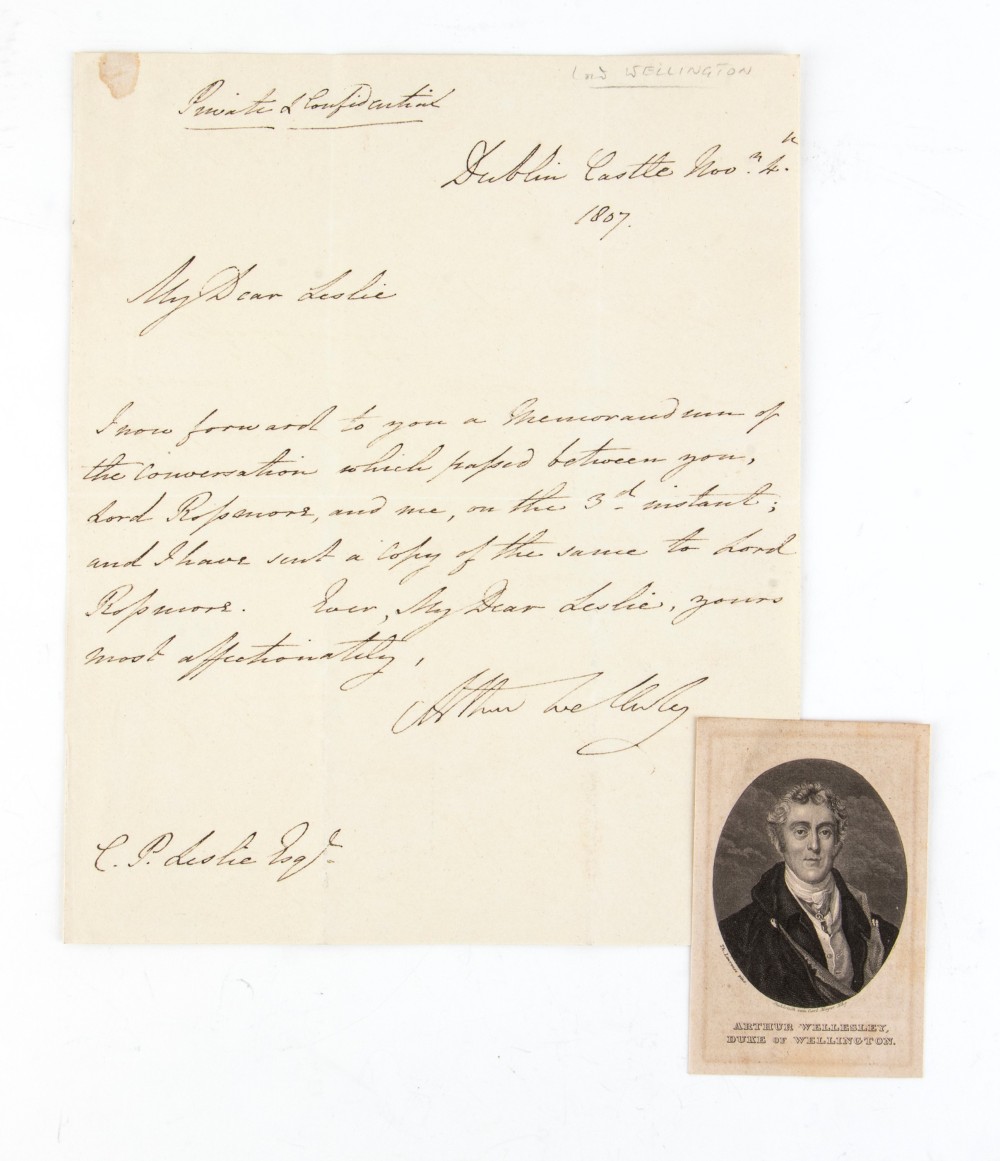 Lord WELLINGTON
Private & Confidential
Dublin Castle Nov.r 4.th
1807.
My Dear Leslie
I now forward to you a Memorandum of
the Conversation which passed between you,
Lord Rossmore, and me, on the 3d. instant;
and I have sent a Copy of the same to Lord
Rossmore. Ever, My Dear Leslie, yours
most affectionately,
Arthur Wellesley
C. P. Leslie Esqr.
ARTHUR WELLESLEY,
DUKE OF WELLINGTON.